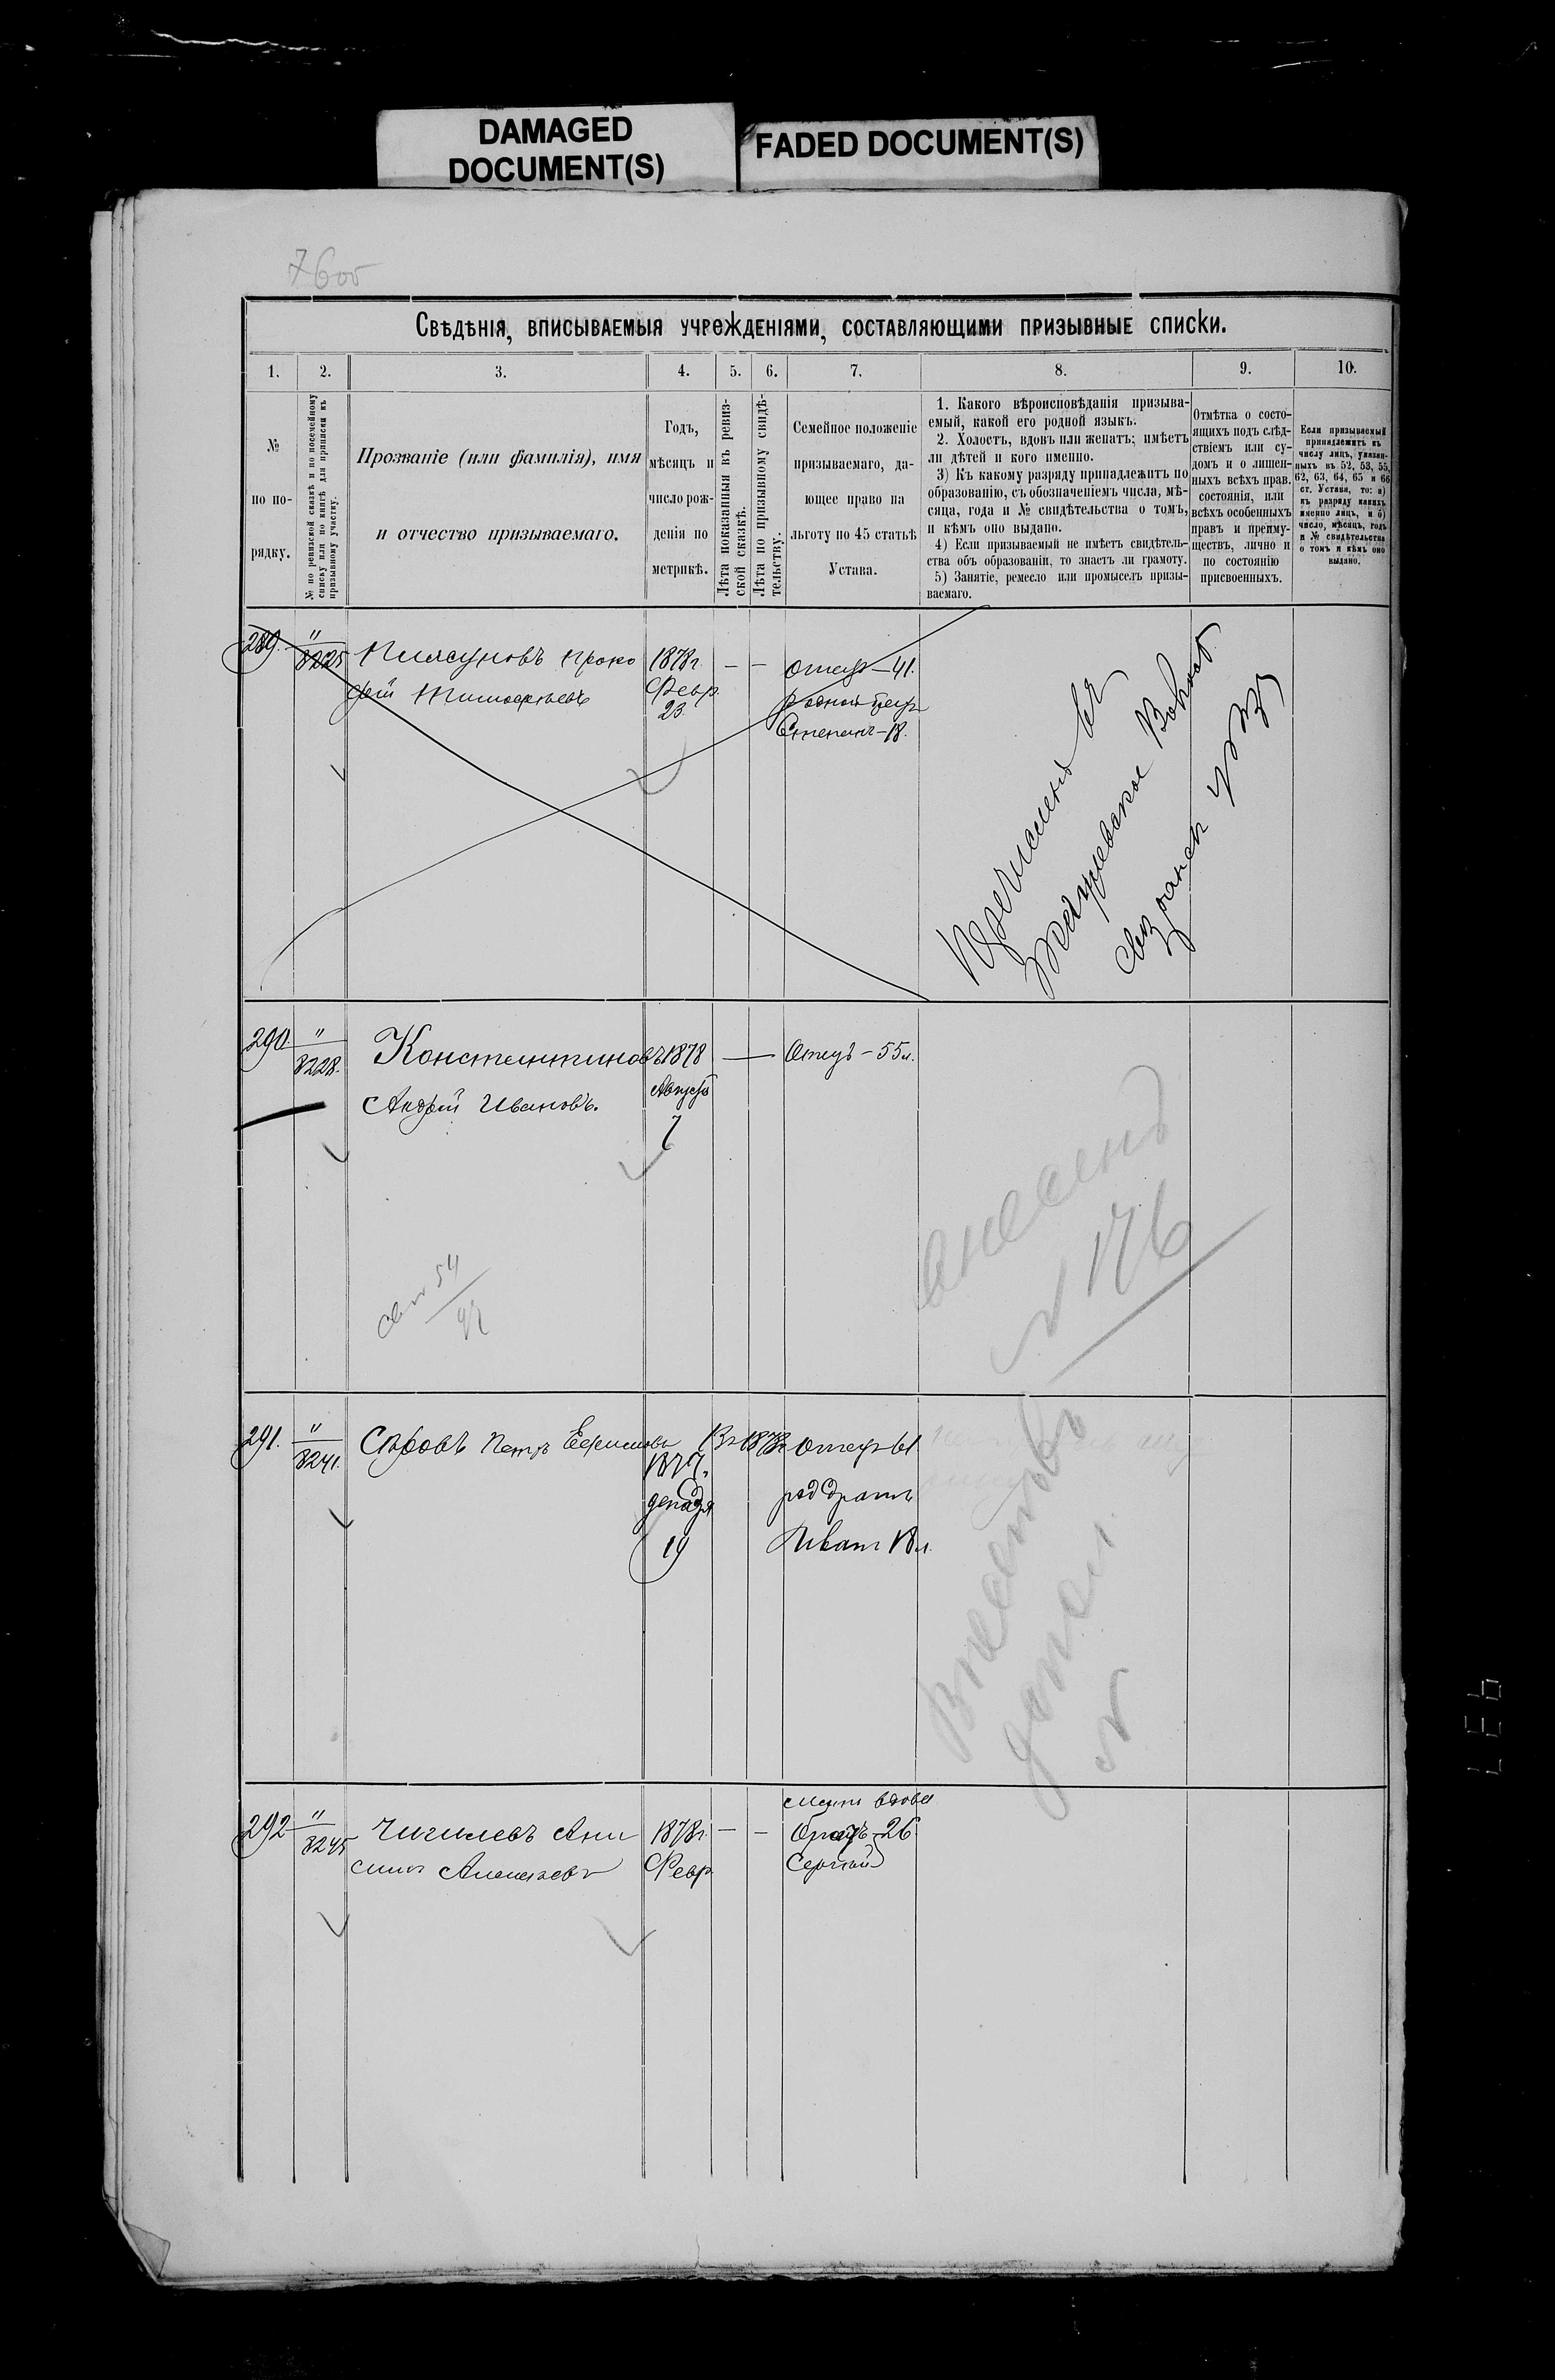 DAMAGED
DOCUMENT(S)
FADED DOCUMENT(S)
Свѣдѣнія, вписываемыя учрежденіями, составляющими призывные списки.
1. 2. 3. 4. 5. 6. 7. 8. 9. 10.
№
по по-
рядку.
№ по ревизской сказкѣ и по посемейному
списку или по книгѣ для приписки къ
призывному участку.
Прозваніе (или фамилія), имя
и отчество призываемаго.
Годъ,
мѣсяцъ и
число рож-
денія по
метрикѣ.
Лѣта показанныя въ ревиз-
ской сказкѣ.
Лѣта по призывному свидѣ-
тельству.
Семейное положеніе
призываемаго, да-
ющее право на
льготу по 45 статьѣ
Устава.
1. Какого вѣроисповѣданія призыва-
емый, какой его родной языкъ.
2. Холостъ, вдовъ или женатъ; имѣетъ
ли дѣтей и кого именно.
3) Къ какому разряду принадлежитъ по
образованію, съ обозначеніемъ числа, мѣ-
сяца, года и № свидѣтельства о томъ,
и кѣмъ оно выдано.
4) Если призываемый не имѣетъ свидѣтель-
ства объ образованіи, то знаетъ ли грамоту.
5) Занятіе, ремесло или промыселъ призы-
ваемаго.
Отмѣтка о состо-
ящихъ подъ слѣд-
ствіемъ или су-
домъ и о лишен-
ныхъ всѣхъ прав.
состоянія, или
всѣхъ особенныхъ
правъ и преиму-
ществъ, лично и
по состоянію
присвоенныхъ.
Если призываемый
принадлежитъ къ
числу лицъ, указан-
ныхъ въ 52, 53, 55,
62, 63, 64, 65 и 66
ст. Устава, то: а)
къ разряду какихъ
именно лицъ, и б)
число, мѣсяцъ, годъ
и № свидѣтельства
о томъ и кѣмъ оно
выдано.
289. " 3225 Проко 1878г. — — отецъ — 41.
фій Тимофеевъ Февр. родной братъ
23. Степанъ — 18.
Перечисленъ въ
290. " 3228. Константиновъ 1878 — Отецъ — 55 л.
Андрей Ивановъ. Августа
7
внесенъ
№ 176
54
291. " 3241. Петръ Ефимовъ отецъ 61
1877. декабря род братъ
19 Иванъ 18 л.
Внесенъ
№
292 " 3245 Чигилевъ Ани 1878г. — — мать вдова
симъ Алексѣевъ Февр. братъ 26
Сергѣй
437